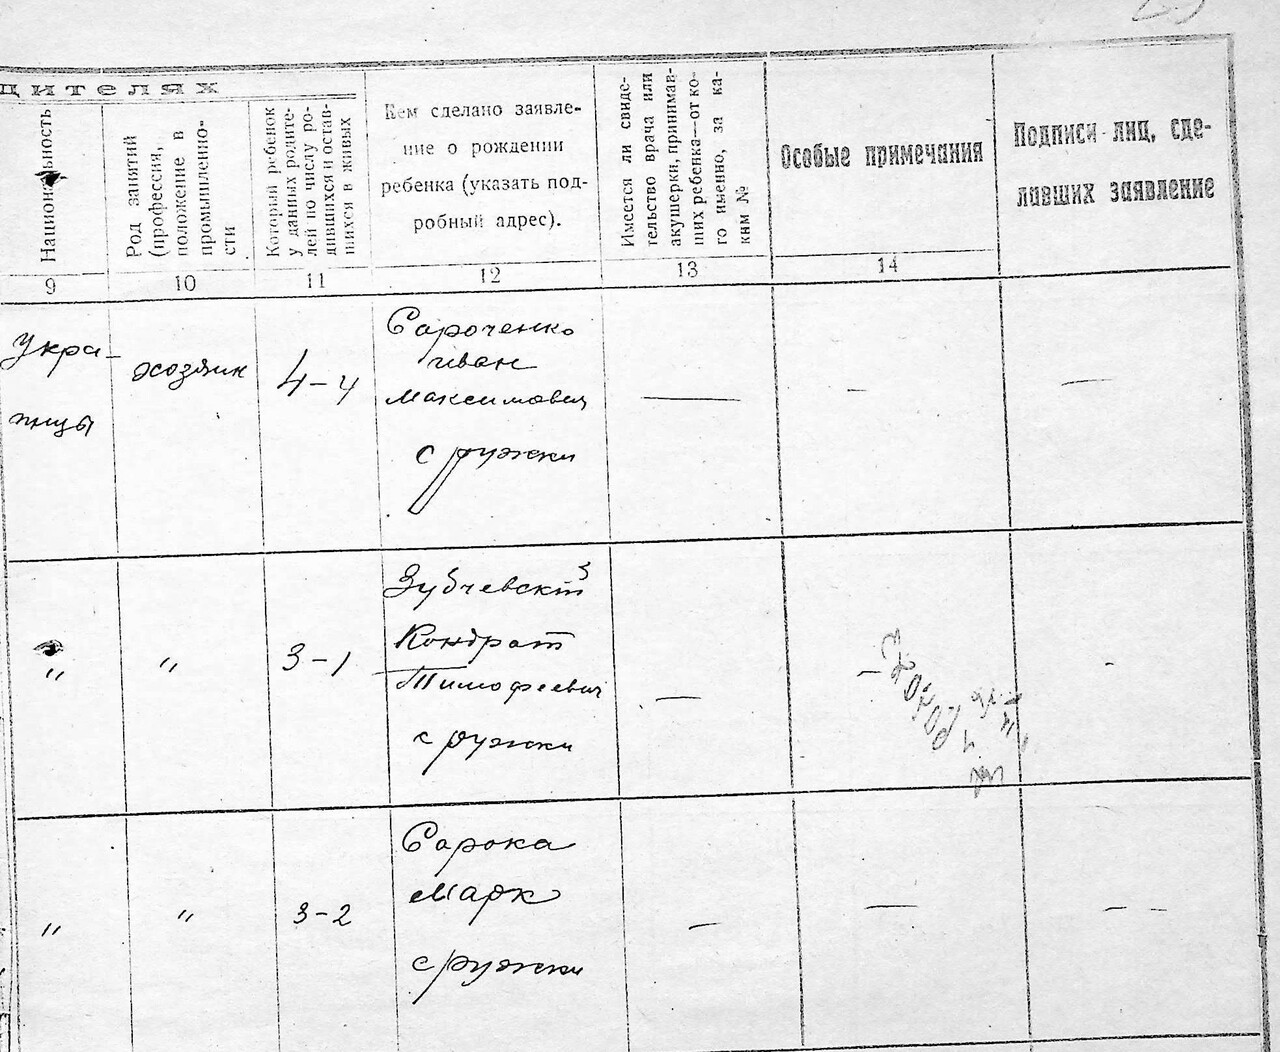 дителях
Национальность
Род занятий
(профессия,
положение в
промышленно-
сти
Который ребенок
у данных родите-
лей по числу ро-
дившихся и остав-
шихся в живых
Кем сделано заявле-
ние о рождении
ребенка (указать под-
робный адрес).
Имеется ли свиде-
тельство врача или
акушерки, принимав-
ших ребенка—от ко-
го именно, за ка-
ким №
Особые примечания
Подписи лиц, сде-
лавших заявление
9
10
11
12
13
14
Укра-
инцы
хозяин
4-4
Сароченко
Иван
Максимович
с ружки
—
—
—
"
"
3-1
Зубчевский
Кондрат
Тимофеевич
с ружки
—
—
-
"
"
3-2
Сорока
Марк
с ружки
—
—
— -